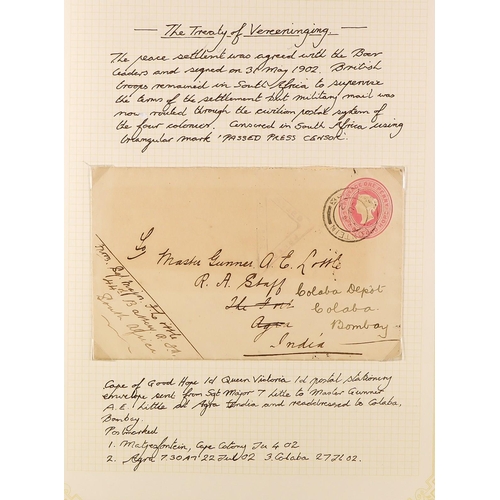 — The Treaty of Vereeninging. —
The peace settlent was agreed with the Boer
leaders and signed on 31 May 1902. British
troops remained in South Africa to supervise
the terms of the settlement but military mail was
now routed through the civilian postal system of
the four colonies. Censored in South Africa using
triangular mark 'PASSED PRESS CENSOR'.
To
Master Gunner A. E. Little
R. A. Staff
The Fort Colaba Depot
Agra Colaba.
India Bombay
From Sgt Major
44 Battery R.F.A.
South Africa
Cape of Good Hope 1d Queen Victoria 1d postal stationery
envelope sent from Sgt Major T Little to Master Gunner
A.E. Little at Agra India and readdressed to Colaba,
Bombay.
Postmarked
1. Matjesfontein, Cape Colony Ju 4 02
2. Agra 7.30 AM 22 Jul 02 3. Colaba 27 Jl 02.